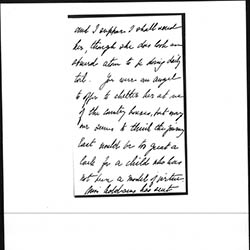 and I suppose I shall need
her, though she does look an
absurd atom to be doing daily
toil. You were an angel
to offer to shelter her at one
of the country houses, but may
one seems to think the journey
East would be too great a
lark for a child who has
not been a model of virtue
Miss Goldsans has sent